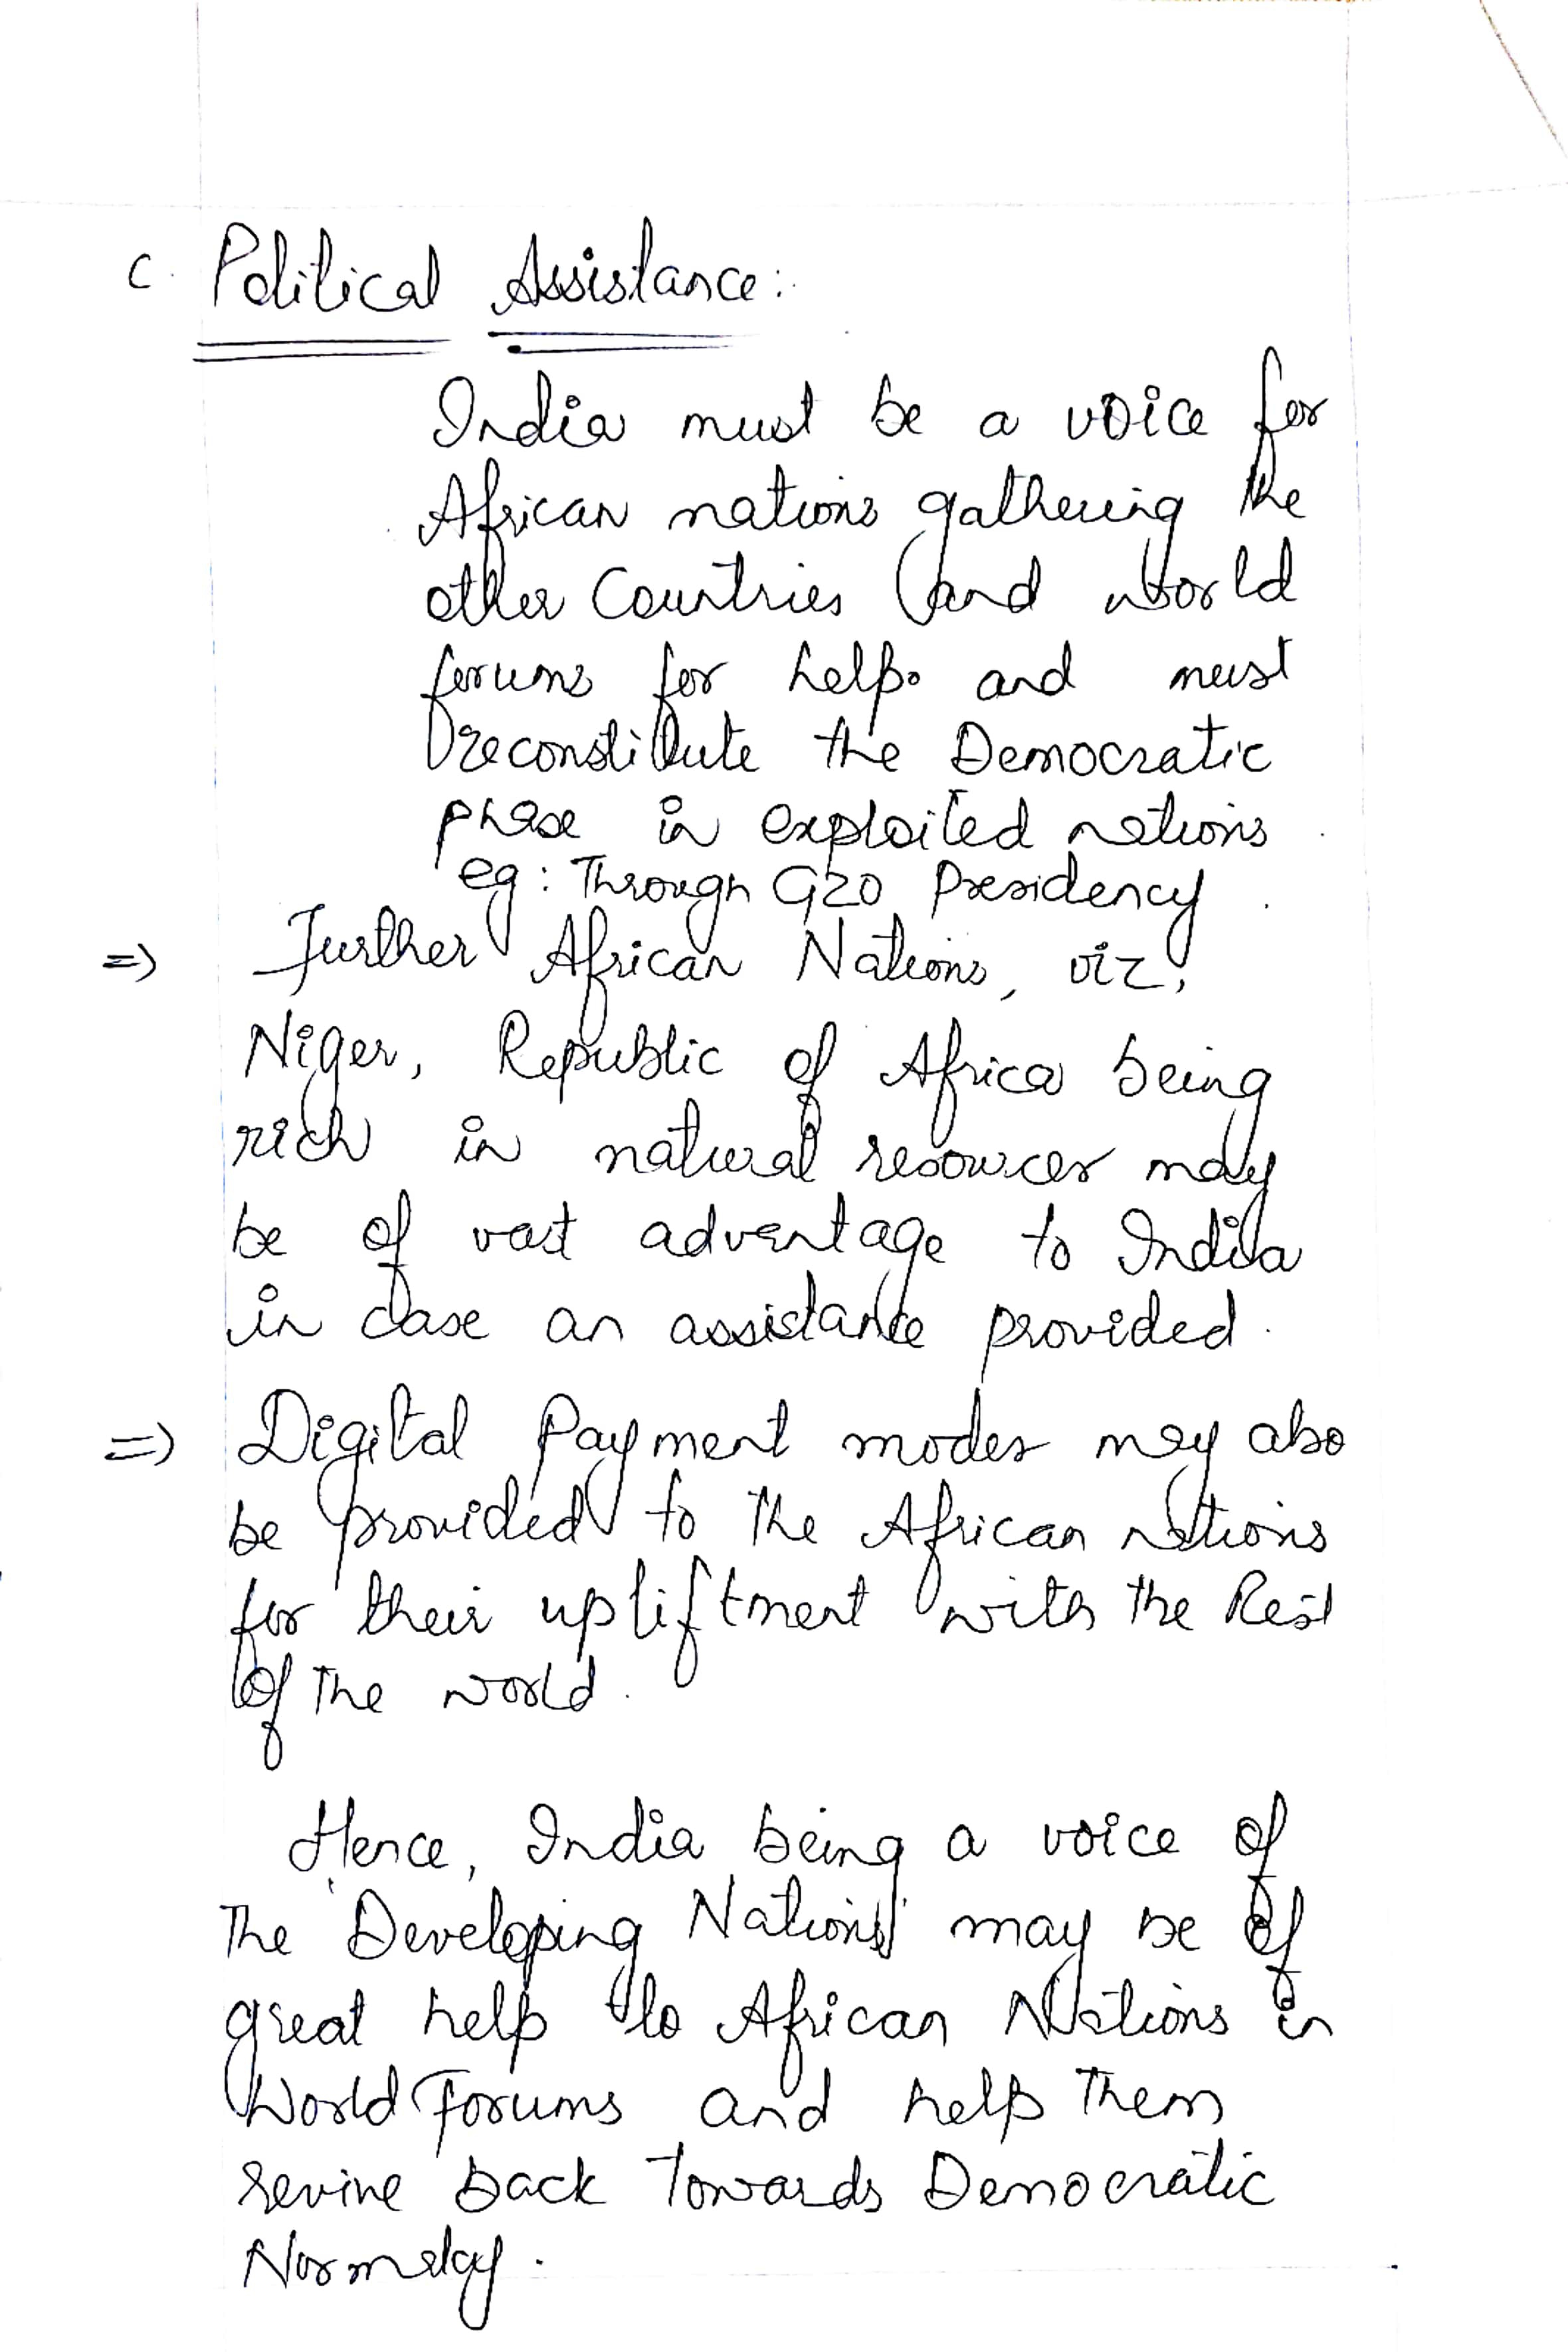 c. Political Assistance:
India must be a voice for
African nations gathering the
other Countries and world
forums for help. and must
reconstitute the Democratic
phase in exploited nations
eg: Through G20 Presidency.
=> Further African Nations, viz,
Niger, Republic of Africa being
rich in natural resources may
be of vast advantage to India
in case an assistance provided.
=> Digital Payment modes may also
be provided to the African nations
for their upliftment with the Rest
of the world.
Hence, India being a voice of
the 'Developing Nations' may be of
great help to African Nations in
World Forums and help them
revive back Towards Democratic